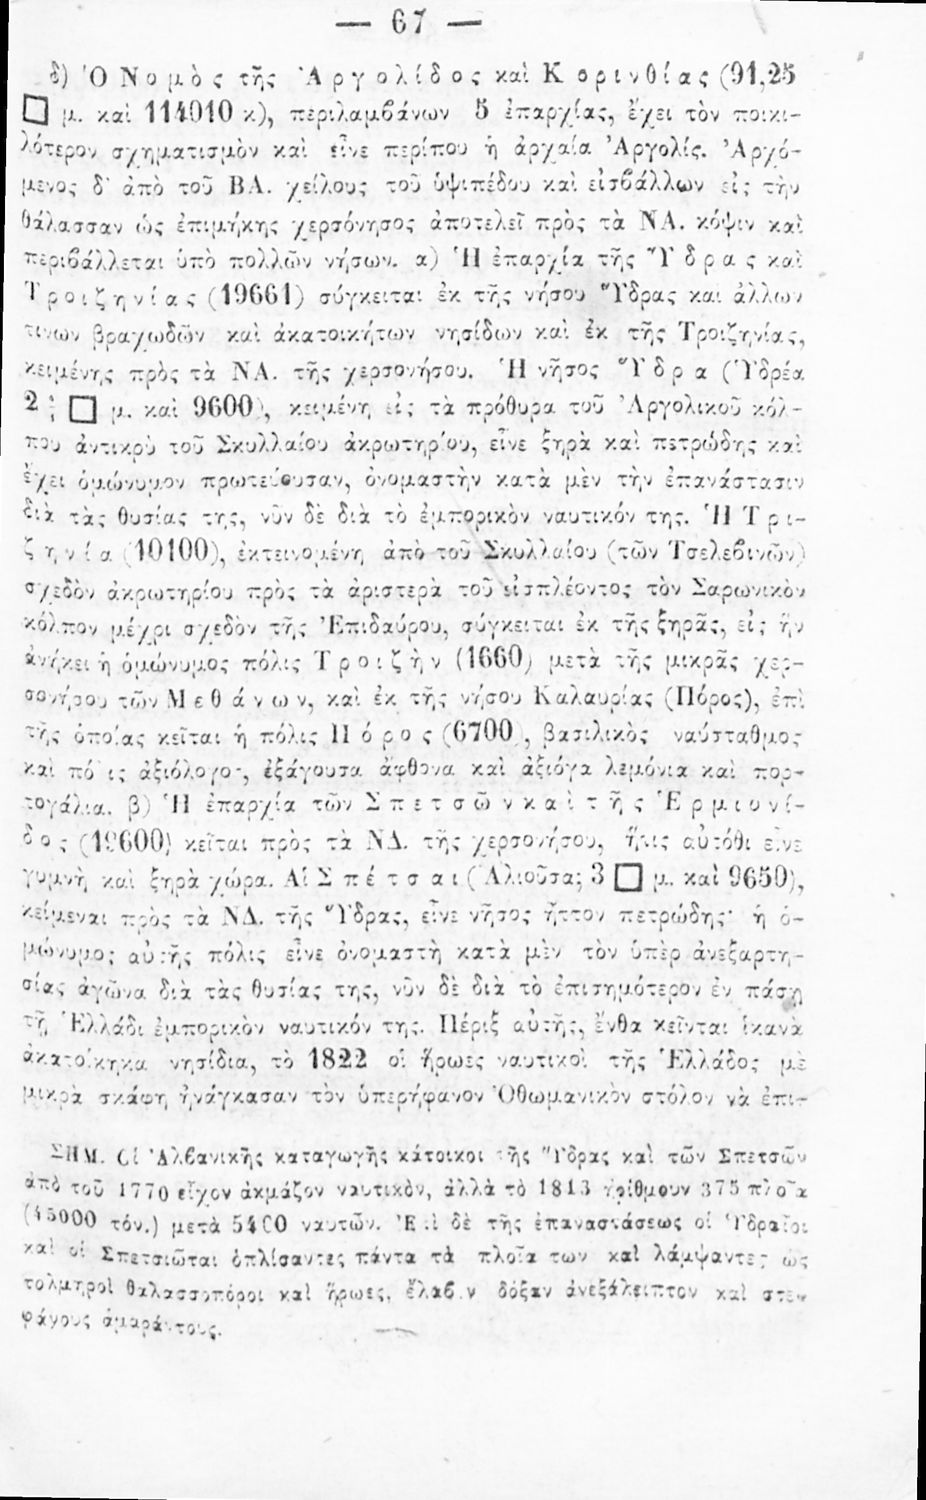 — 67 —
δ) Ὁ Νομὸς τῆς Ἀργολίδος καὶ Κορινθίας (91,25
□ μ. καὶ 114010 κ), περιλαμβάνων 5 ἐπαρχίας, ἔχει τὸν ποικι-
λότερον σχηματισμὸν καὶ εἶνε περίπου ἡ ἀρχαία Ἀργολίς. Ἀρχό-
μενος δ' ἀπὸ τοῦ ΒΑ. χείλους τοῦ ὑψιπέδου καὶ εἰσβάλλων εἰς τὴν
θάλασσαν ὡς ἐπιμήκης χερσόνησος ἀποτελεῖ πρὸς τὰ ΝΑ. κόψιν καὶ
περιβάλλεται ὑπὸ πολλῶν νήσων. α) Ἡ ἐπαρχία τῆς Ὕδρας καὶ
Τροιζηνίας (19661) σύγκειται ἐκ τῆς νήσου Ὕδρας καὶ ἄλλων
τινων βραχωδῶν καὶ ἀκατοικήτων νησίδων καὶ ἐκ τῆς Τροιζηνίας,
κειμένης πρὸς τὰ ΝΑ. τῆς χερσονήσου. Ἡ νῆσος Ὕδρα (Ὑδρέα
2 ; □ μ. καὶ 9600), κειμένη εἰς τὰ πρόθυρα τοῦ Ἀργολικοῦ κόλ-
που ἀντικρὺ τοῦ Σκυλλαίου ἀκρωτηρίου, εἶνε ξηρὰ καὶ πετρώδης καὶ
ἔχει ὁμώνυμον πρωτεύουσαν, ὀνομαστὴν κατὰ μὲν τὴν ἐπανάστασιν
διὰ τὰς θυσίας της, νῦν δὲ διὰ τὸ ἐμπορικὸν ναυτικόν της. Ἡ Τρι-
ζηνία (10100), ἐκτεινομένη ἀπὸ τοῦ Σκυλλαίου (τῶν Τσελεβινῶν)
σχεδὸν ἀκρωτηρίου πρὸς τὰ ἀριστερὰ τοῦ εἰσπλέοντος τὸν Σαρωνικὸν
κόλπον μέχρι σχεδὸν τῆς Ἐπιδαύρου, σύγκειται ἐκ τῆς ξηρᾶς, εἰς ἣν
ἀνήκει ἡ ὁμώνυμος πόλις Τροιζὴν (1660) μετὰ τῆς μικρᾶς χερ-
σονήσου τῶν Μεθάνων, καὶ ἐκ τῆς νήσου Καλαυρίας (Πόρος), ἐπὶ
τῆς ὁποίας κεῖται ἡ πόλις Πόρος (6700), βασιλικὸς ναύσταθμος
καὶ πό ις ἀξιόλογο-, ἐξάγουσα ἄφθονα καὶ ἀξιόγα λεμόνια καὶ πορ-
τογάλια. β) Ἡ ἐπαρχία τῶν Σπετσῶν καὶ τῆς Ἑρμιονί-
δος (19600) κεῖται πρὸς τὰ ΝΔ. τῆς χερσονήσου, ἥτις αὐτόθι εἶνε
γυμνὴ καὶ ξηρὰ χώρα. Αἱ Σπέτσαι (Ἁλιοῦσα; 3 □ μ. καὶ 9650),
κείμεναι πρὸς τὰ ΝΔ. τῆς Ὕδρας, εἶνε νῆσος ἧττον πετρώδης· ἡ ὁ-
μώνυμος αὐτῆς πόλις εἶνε ὀνομαστὴ κατὰ μὲν τὸν ὑπὲρ ἀνεξαρτη-
σίας ἀγῶνα διὰ τὰς θυσίας της, νῦν δὲ διὰ τὸ ἐπισημότερον ἐν πάσῃ
τῇ Ἑλλάδι ἐμπορικὸν ναυτικόν της. Πέριξ αὐτῆς, ἔνθα κεῖνται ἱκανὰ
ἀκατοίκηκα νησίδια, τὸ 1822 οἱ ἥρωες ναυτικοὶ τῆς Ἑλλάδος μὲ
μικρὰ σκάφη ἠνάγκασαν τὸν ὑπερήφανον Ὀθωμανικὸν στόλον νὰ ἐπι-
ΣΗΜ. Οἱ Ἀλβανικῆς καταγωγῆς κάτοικοι τῆς Ὕδρας καὶ τῶν Σπετσῶν
ἀπὸ τοῦ 1770 εἶχον ἀκμάζον ναυτικὸν, ἀλλὰ τὸ 1813 ἠρίθμουν 375 πλοῖα
(45000 τόν.) μετὰ 5400 ναυτῶν. Ἐπὶ δὲ τῆς ἐπαναστάσεως οἱ Ὑδραῖοι
καὶ οἱ Σπετσιῶται ὁπλίσαντες πάντα τὰ πλοῖα των καὶ λάμψαντες ὡς
τολμηροὶ θαλασσοπόροι καὶ ἥρωες, ἔλαβον δόξαν ἀνεξάλειπτον καὶ στε-
φάνους ἀμαράντους.